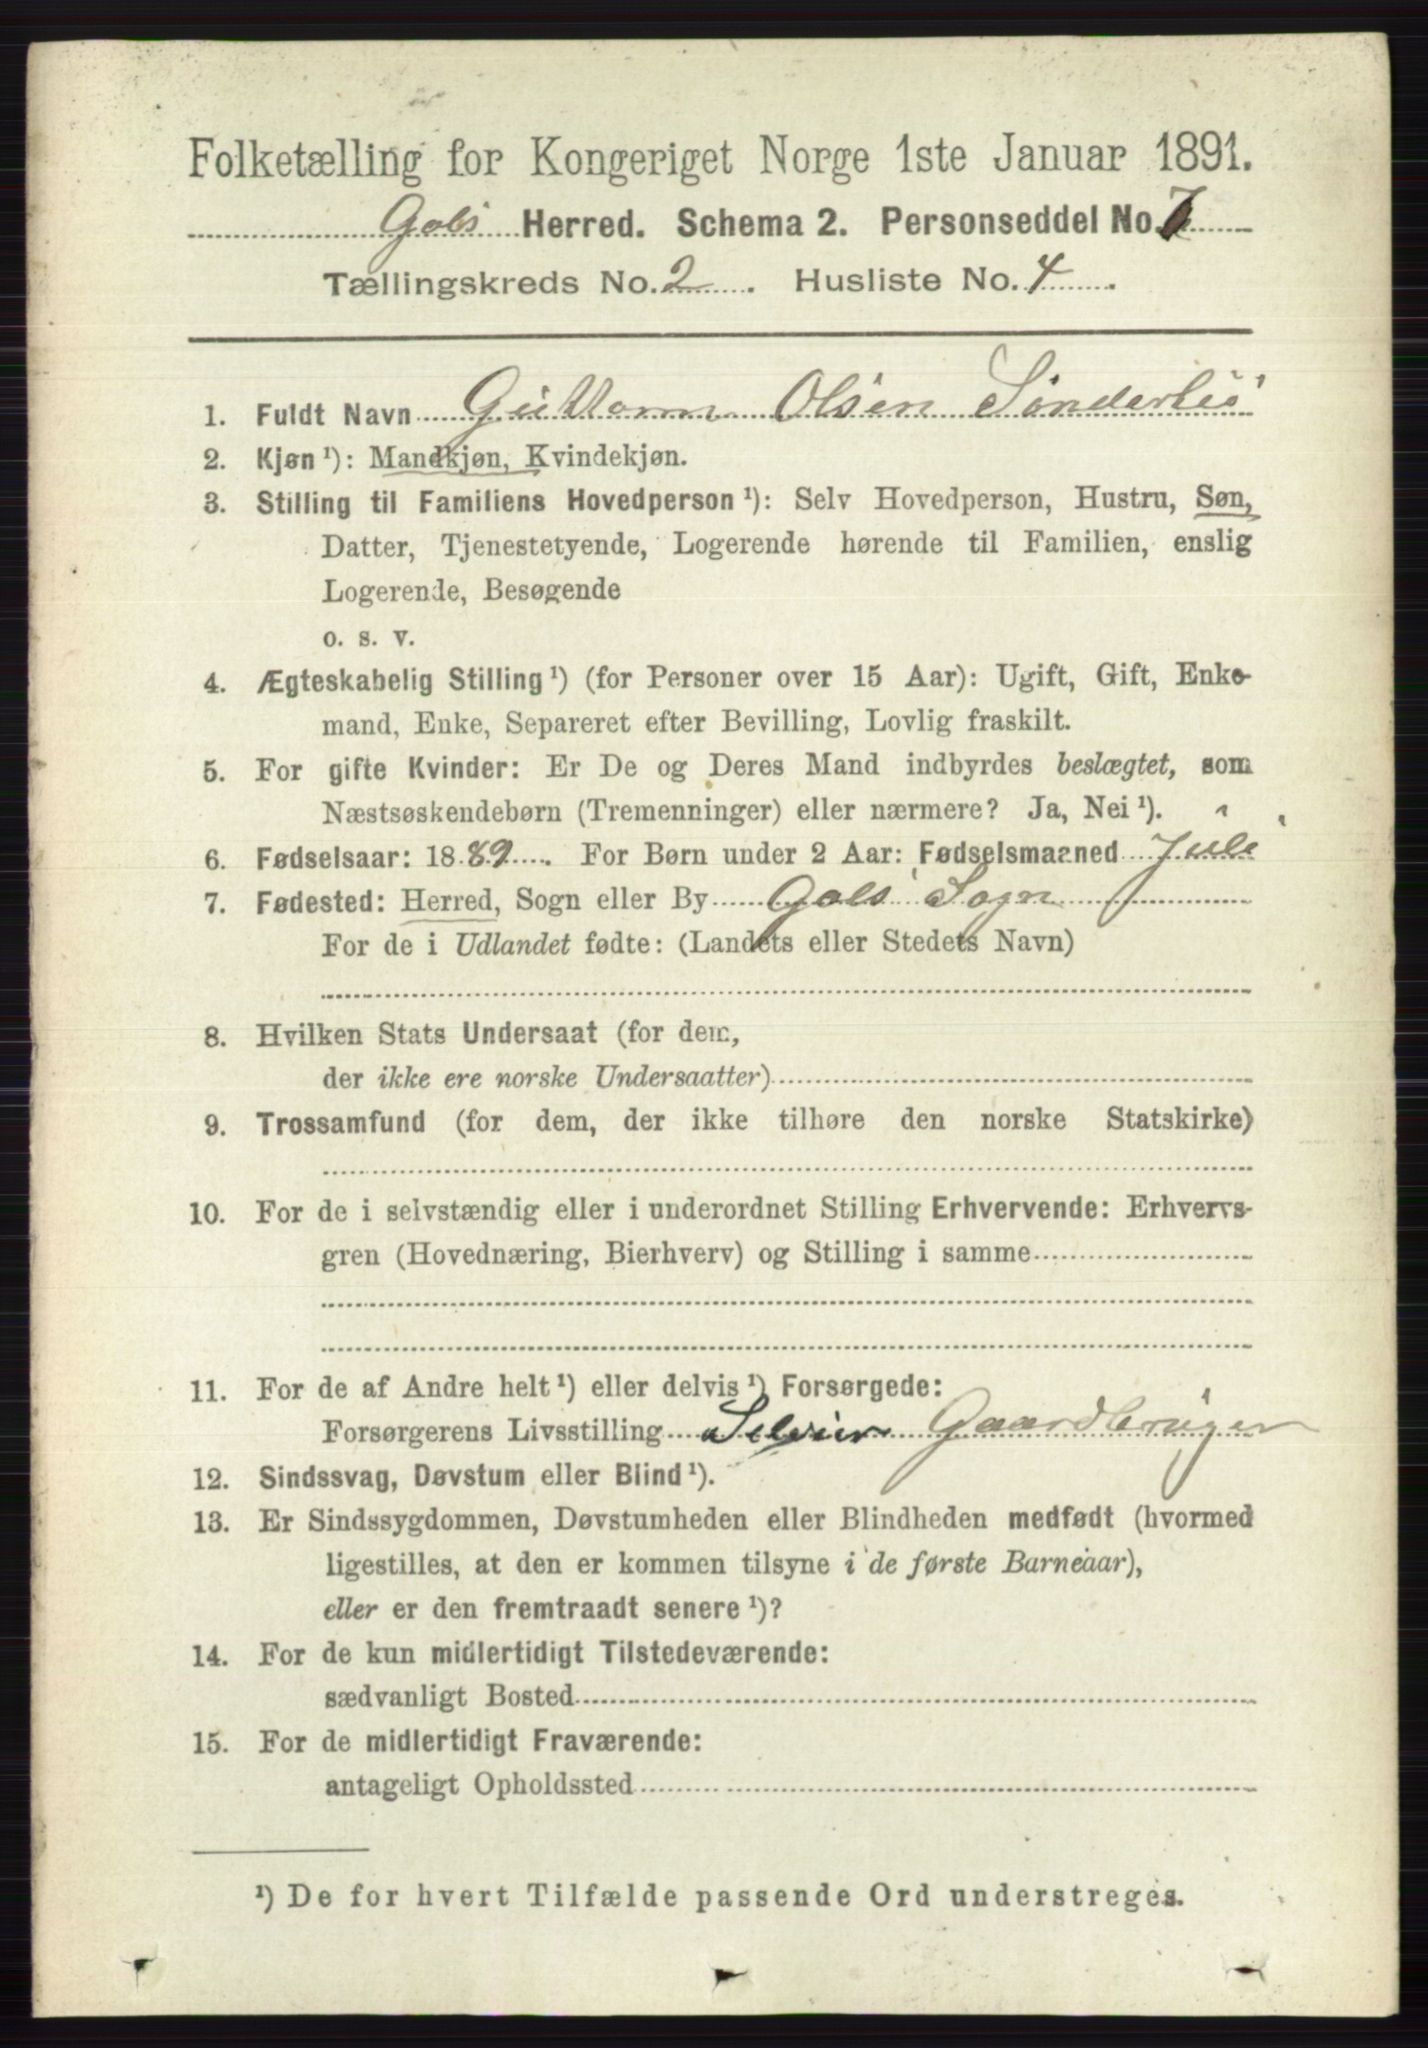 Folketælling for Kongeriget Norge 1ste Januar 1891.
Gols Herred. Schema 2. Personseddel No. 7
Tællingskreds No. 2. Husliste No. 4.
1. Fuldt Navn Guttorm Olsen Sønderlii
2. Kjøn ¹): Mandkjøn, Kvindekjøn.
3. Stilling til Familiens Hovedperson ¹): Selv Hovedperson, Hustru, Søn,
Datter, Tjenestetyende, Logerende hørende til Familien, enslig
Logerende, Besøgende
o. s. v.
4. Ægteskabelig Stilling ¹) (for Personer over 15 Aar): Ugift, Gift, Enke-
mand, Enke, Separeret efter Bevilling, Lovlig fraskilt.
5. For gifte Kvinder: Er De og Deres Mand indbyrdes beslægtet, som
Næstsøskendebørn (Tremenninger) eller nærmere? Ja, Nei ¹).
6. Fødselsaar: 1889. For Børn under 2 Aar: Fødselsmaaned Juli
7. Fødested: Herred, Sogn eller By Gols Sogn
For de i Udlandet fødte: (Landets eller Stedets Navn)
8. Hvilken Stats Undersaat (for dem,
der ikke ere norske Undersaatter)
9. Trossamfund (for dem, der ikke tilhøre den norske Statskirke)
10. For de i selvstændig eller i underordnet Stilling Erhvervende: Erhvervs-
gren (Hovednæring, Bierhverv) og Stilling i samme
11. For de af Andre helt ¹) eller delvis ¹) Forsørgede:
Forsørgerens Livsstilling Selvier Gaardbruger
12. Sindssvag, Døvstum eller Blind ¹).
13. Er Sindssygdommen, Døvstumheden eller Blindheden medfødt (hvormed
ligestilles, at den er kommen tilsyne i de første Barneaar),
eller er den fremtraadt senere ¹)?
14. For de kun midlertidigt Tilstedeværende:
sædvanligt Bosted
15. For de midlertidigt Fraværende:
antageligt Opholdssted
¹) De for hvert Tilfælde passende Ord understreges.